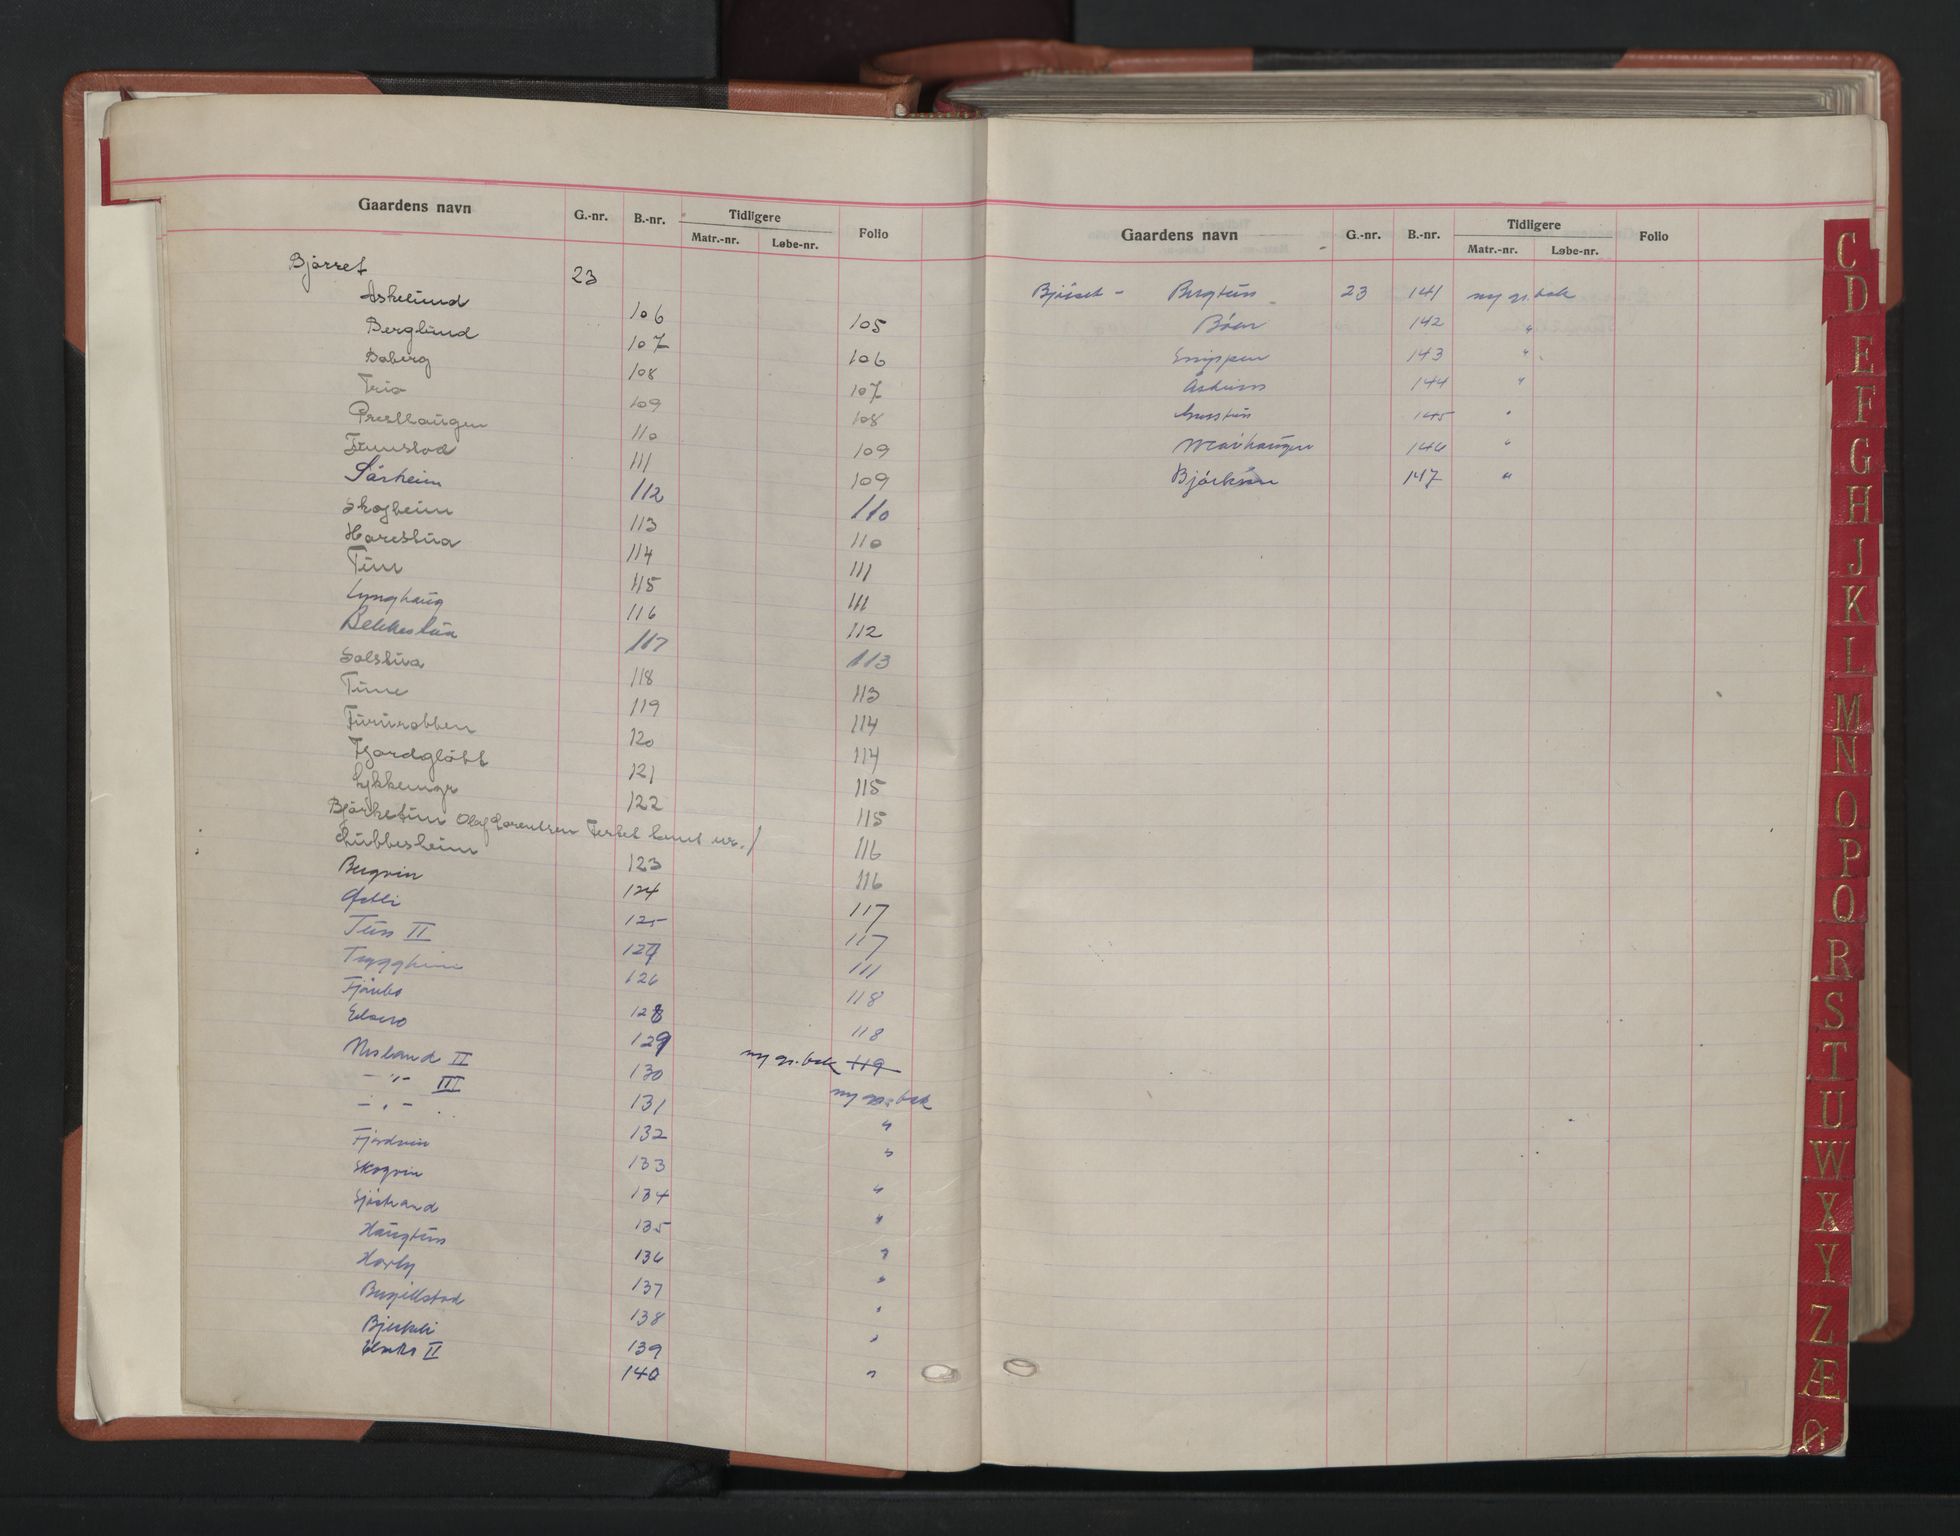 Gaardens navn G.-nr. B.-nr. Tidligere Folio
Matr.-nr. Løbe-nr.
Bjørset 23
Askelund 106 105
Berglund 107 106
Boberg 108 107
Trio 109 108
Presthaugen 110 109
111 109
Sørheim 112 110
Skogheim 113 110
Harestua 114 111
Tun 115 111
Lynghaug 116 112
Bekkestua 117 113
Solstua 118 113
Tune 119 114
Fururabben 120 114
Fjordgløtt 121 115
122 115
Bjørketun Olaf Lorentsen Festet tomt nr. / 116
Lubbesheim 123 116
Bergvin 124 117
125 117
Tun II 127 111
Tryggheim 126 118
Fjørebo 128 118
129 ny gr.bok 119
II 130 ny gr.bok
- " - III 131 "
- " - 132 "
Fjordvin 133 "
Skogvin 134 "
Sjøstrand 135 "
Haugtun 136 "
Harly 137 "
138 "
Bjerkeli 139 "
II 140 "
Gaardens navn G.-nr. B.-nr. Tidligere Folio
Matr.-nr. Løbe-nr.
Bjørset - Bergtun 23 141 ny gr.bok
142 "
143 "
144 "
145 "
146 "
147 "
C
D
E
F
G
H
J
K
L
M
N
O
P
Q
R
S
T
U
W
X
Y
Z
Æ
Ø